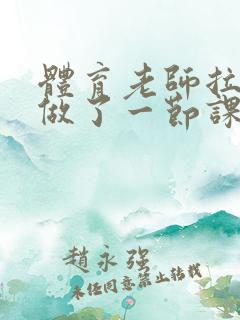 體育老師拉
做了一節課
趙永強
未任同意禁止转载